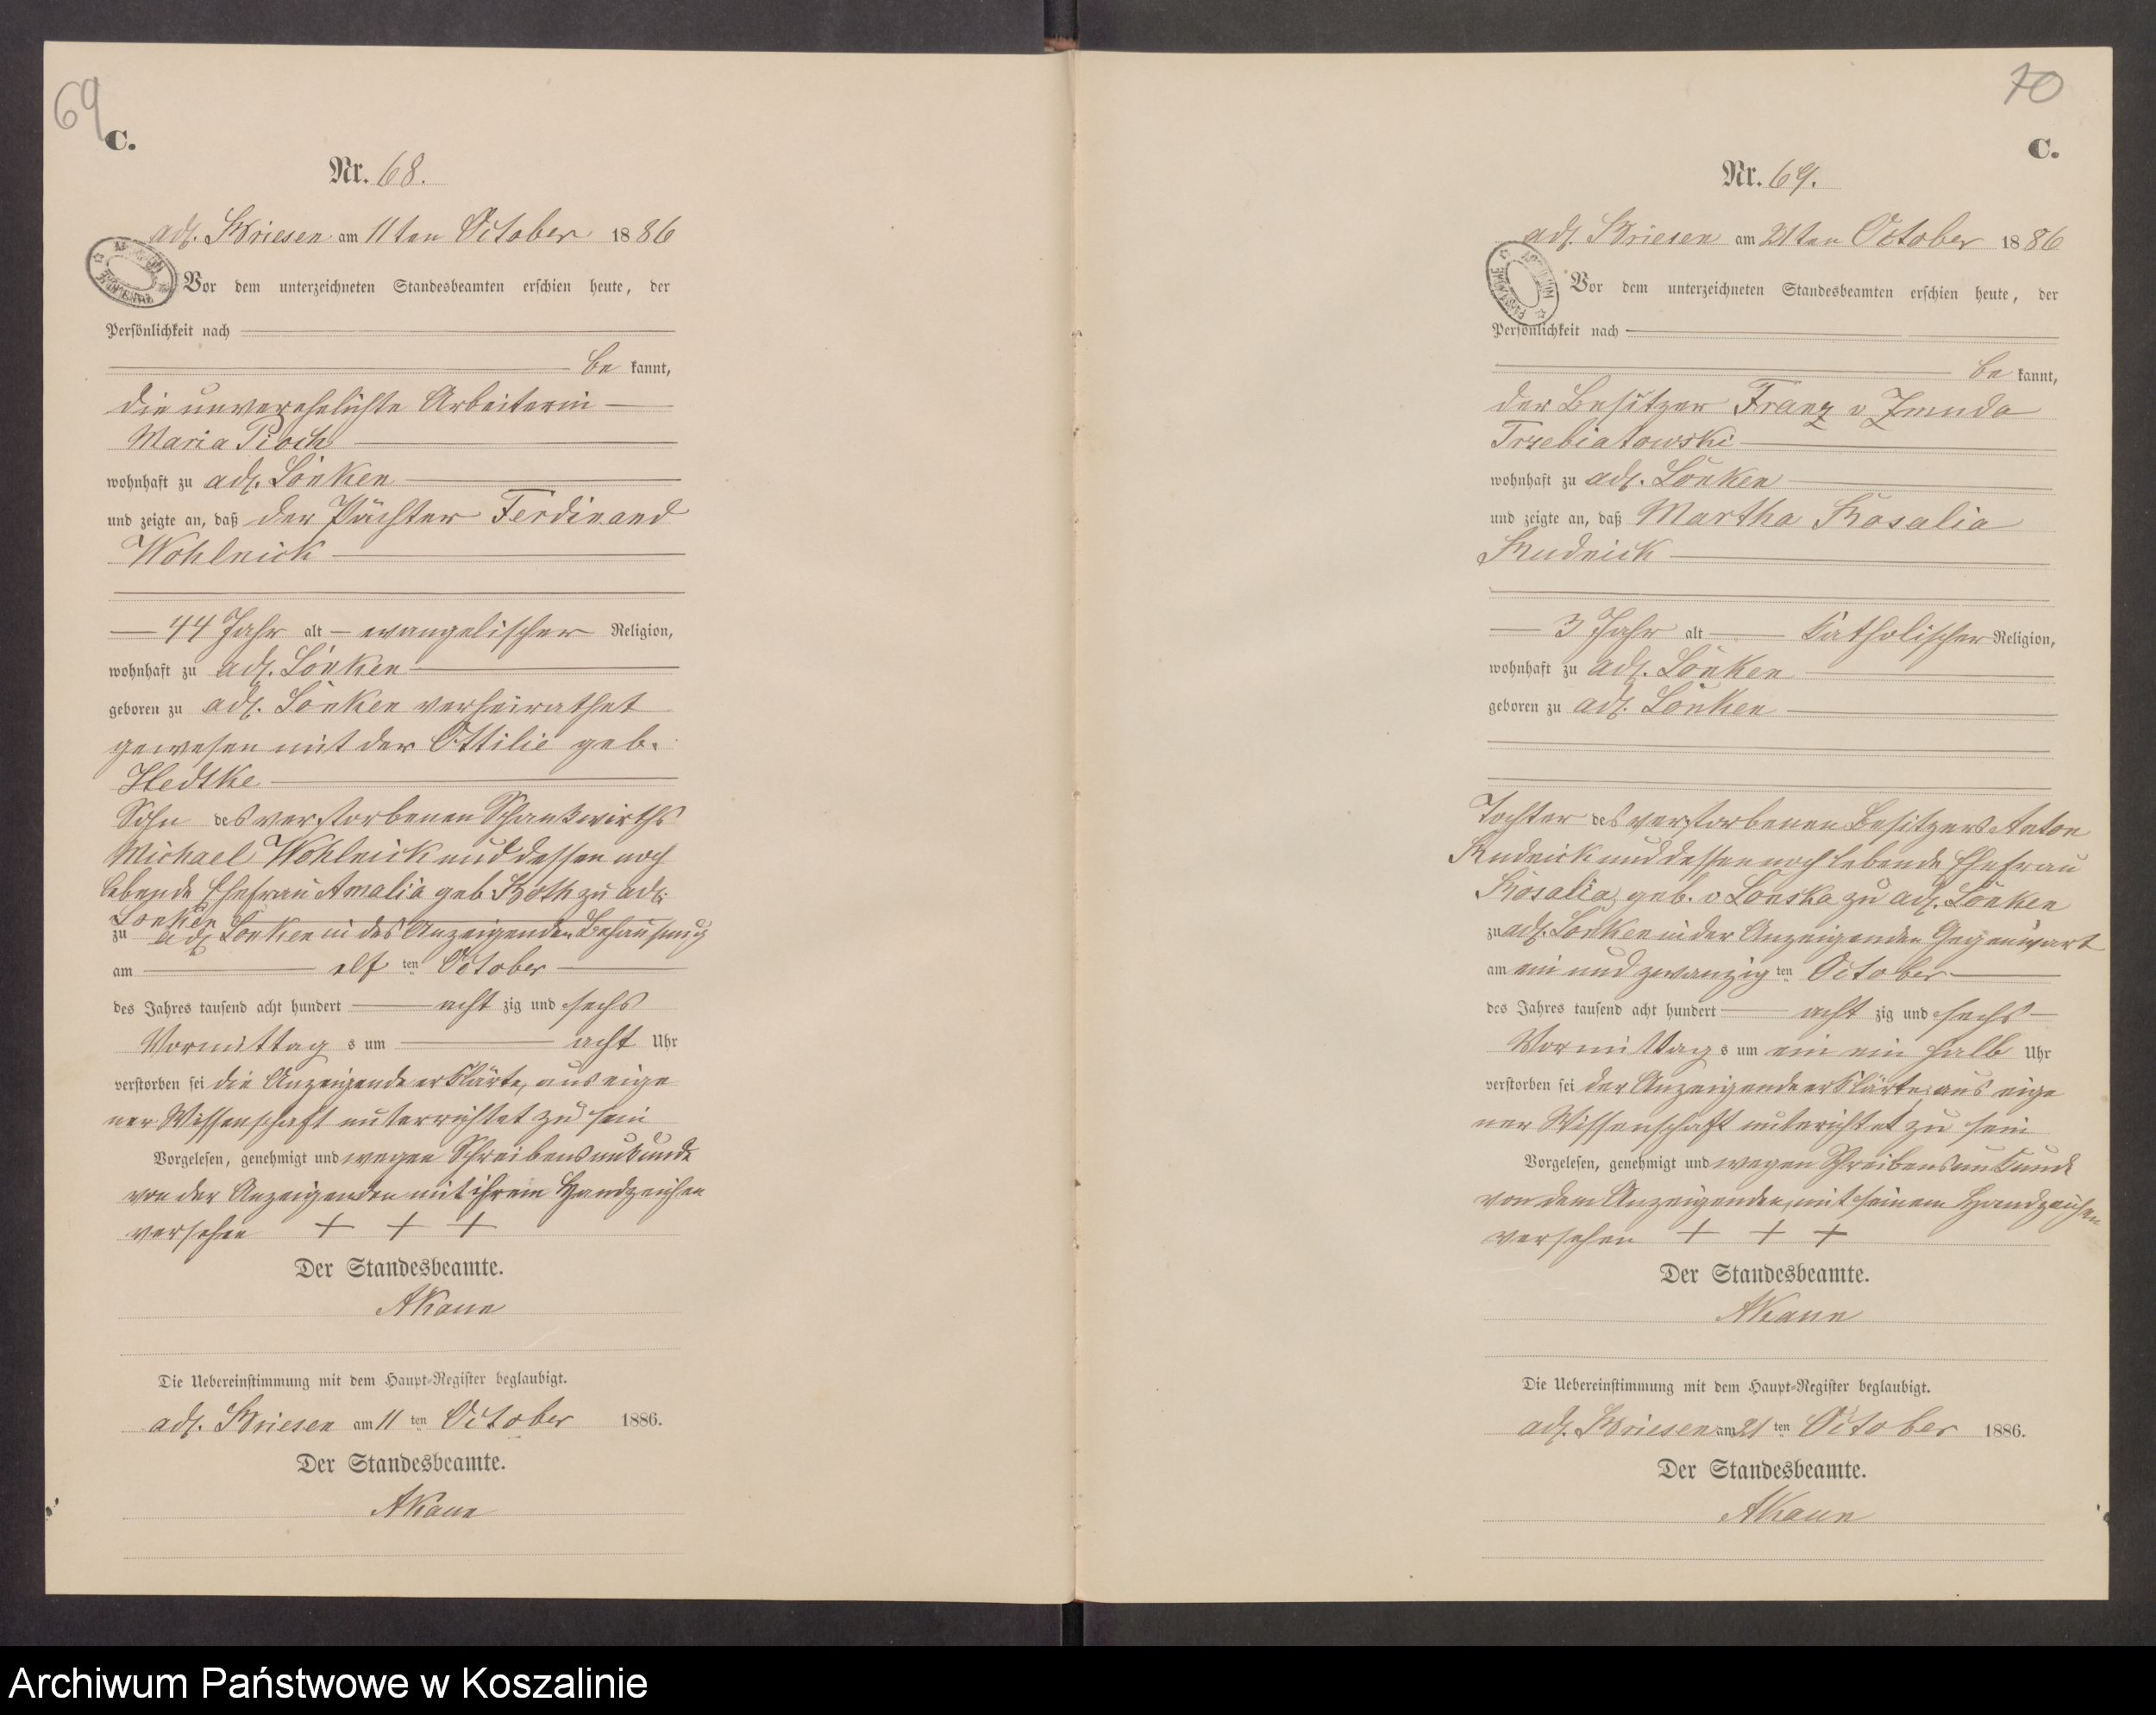 69
C.
Nr. 68.
adl. Briesen am 11ten October 1886
Vor dem unterzeichneten Standesbeamten erschien heute, der
Persönlichkeit nach
be kannt,
die unverehelichte Arbeiterin
Maria Pioch
wohnhaft zu adl. Lonken
und zeigte an, daß der Pächter Ferdinand
Wohlneick
44 Jahr alt – evangelischer Religion,
wohnhaft zu adl. Lonken
geboren zu adl. Lonken verheirathet
gewesen mit der Ottilie geb.
Hedtke
Sohn des verstorbenen Schankwirths
Michael Wohlneick und dessen noch
lebende Ehefrau Amalia geb. Both zu adl.
Lonken
zu adl Lonken in des Anzeigenden Behausung
am elf ten October
des Jahres tausend acht hundert acht zig und sechs
Vormittag s um acht Uhr
verstorben sei die Anzeigende erklärte, aus eige
ner Wissenschaft unterrichtet zu sein
Vorgelesen, genehmigt und wegen Schreibensunkunde
von der Anzeigenden mit ihrem Handzeichen
versehen + + +
Der Standesbeamte.
AKaun
Die Uebereinstimmung mit dem Haupt-Register beglaubigt.
adl. Briesen am 11 ten October 1886.
Der Standesbeamte.
AKaun
70
C.
Nr. 69.
adl. Briesen am 21ten October 1886
Vor dem unterzeichneten Standesbeamten erschien heute, der
Persönlichkeit nach
be kannt,
der Besitzer Franz v Zmuda
Trzebiatowski
wohnhaft zu adl. Lonken
und zeigte an, daß Martha Rosalia
Rudnick
3 Jahr alt Katholischer Religion,
wohnhaft zu adl. Lonken
geboren zu adl. Lonken
Tochter des verstorbenen Besitzers Anton
Rudnick und dessen noch lebende Ehefrau
Rosalia, geb. v Lonska zu adl. Lonken
zu adl. Lonken in der Anzeigenden Gegenwart
am ein und zwanzig ten October
des Jahres tausend acht hundert acht zig und sechs
Vormittag s um ein ein halb Uhr
verstorben sei der Anzeigende erklärte, aus eige
ner Wissenschaft unterichtet zu sein
Vorgelesen, genehmigt und wegen Schreibensunkunde
von dem Anzeigenden, mit seinem Handzeichen
versehen + + +
Der Standesbeamte.
AKaun
Die Uebereinstimmung mit dem Haupt-Register beglaubigt.
adl. Briesen am 21 ten October 1886.
Der Standesbeamte.
AKaun
Archiwum Państwowe w Koszalinie